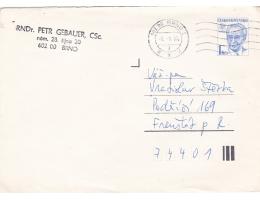 RNDr. PETR GEBAUER, CSc.
nám. 28. října 20
602 00 BRNO
ČESKOSLOVENSKO
Vážpan
Vratislav Štěrba
Podříčí 169
Frenštát p R
74401